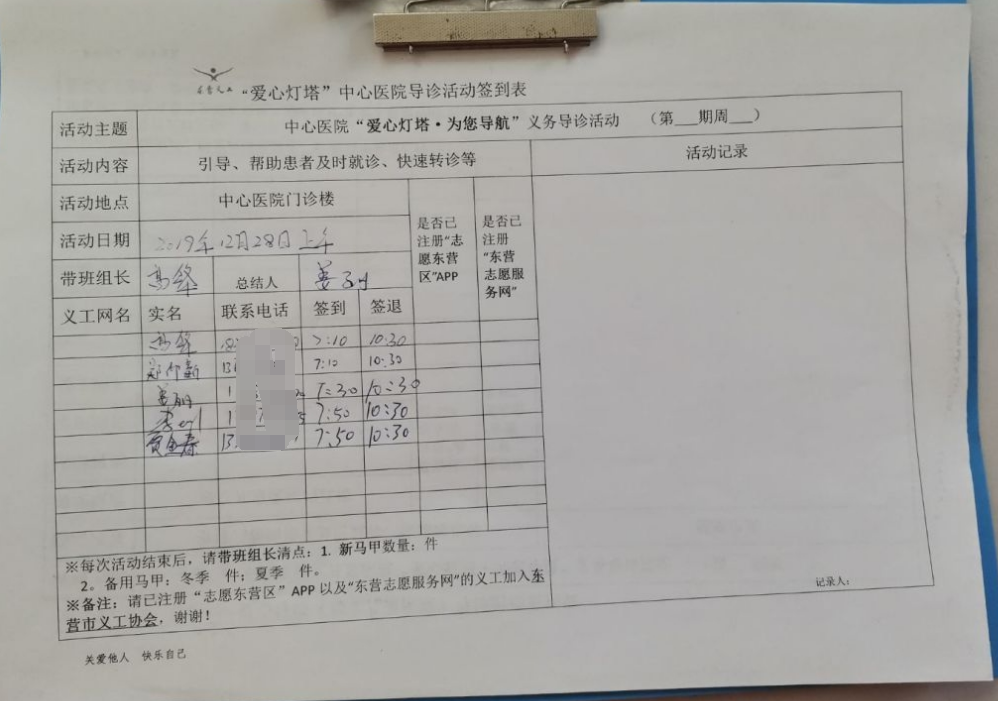 “爱心灯塔”中心医院导诊活动签到表
活动主题 中心医院“爱心灯塔·为您导航”义务导诊活动 （第___期周___）
活动内容 引导、帮助患者及时就诊、快速转诊等 活动记录
活动地点 中心医院门诊楼
是否已注册“志愿东营区”APP
是否已注册“东营志愿服务网”
活动日期 2019年12月28日上午
带班组长 总结人
义工网名 实名 联系电话 签到 签退
7:10 10:30
7:10 10:30
7:30 10:30
7:50 10:30
7:50 10:30
※每次活动结束后，请带班组长清点：1. 新马甲数量： 件
2。备用马甲：冬季 件；夏季 件。
※备注：请已注册“志愿东营区”APP以及“东营志愿服务网”的义工加入东
营市义工协会，谢谢！
记录人：
关爱他人 快乐自己